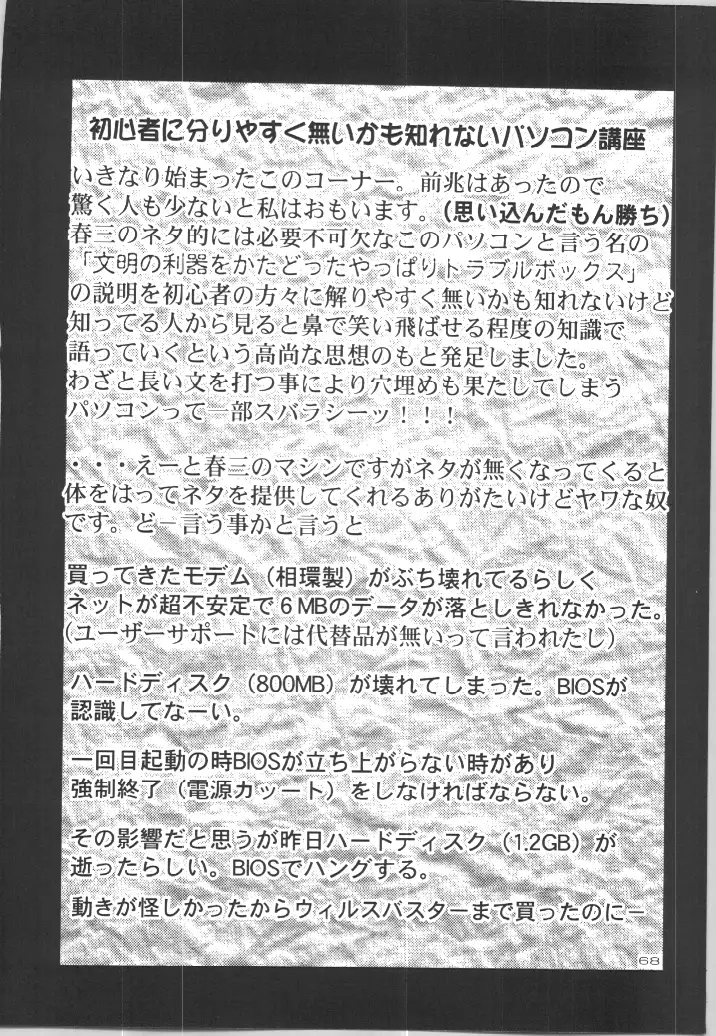 初心者に分りやすく無いかも知れないパソコン講座
いきなり始まったこのコーナー。前兆はあったので
驚く人も少ないと私はおもいます。(思い込んだもん勝ち)
春三のネタ的には必要不可欠なこのパソコンと言う名の
「文明の利器をかたどったやっぱりトラブルボックス」
の説明を初心者の方々に解りやすく無いかも知れないけど
知ってる人から見ると鼻で笑い飛ばせる程度の知識で
語っていくという高尚な思想のもと発足しました。
わざと長い文を打つ事により穴埋めも果たしてしまう
パソコンって一部スバラシーッ!!!
・・・えーと春三のマシンですがネタが無くなってくると
体をはってネタを提供してくれるありがたいけどヤワな奴
です。どー言う事かと言うと
買ってきたモデム(相環製)がぶち壊れてるらしく
ネットが超不安定で6MBのデータが落としきれなかった。
(ユーザーサポートには代替品が無いって言われたし)
ハードディスク(800MB)が壊れてしまった。BIOSが
認識してなーい。
一回目起動の時BIOSが立ち上がらない時があり
強制終了(電源カッート)をしなければならない。
その影響だと思うが昨日ハードディスク(1.2GB)が
逝ったらしい。BIOSでハングする。
動きが怪しかったからウィルスバスターまで買ったのにー
68